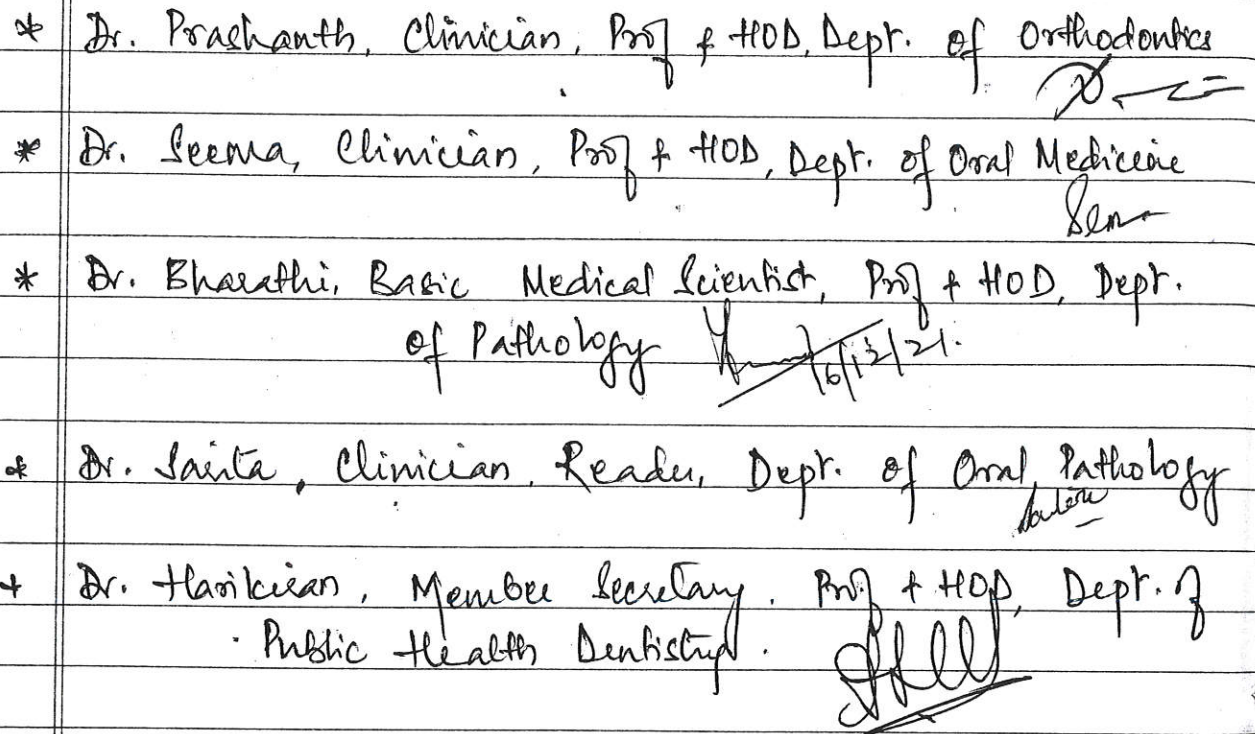 * Dr. Prashanth, Clinician, Prof & HOD, Dept. of Orthodontics
* Dr. Seema, Clinician, Prof & HOD, Dept. of Oral Medicine
* Dr. Bharathi, Basic Medical Scientist, Prof & HOD, Dept.
of Pathology 16/12/21.
* Dr. Clinician, Reader, Dept. of Oral Pathology
* Dr. Harikiran, Member Secretary. Prof & HOD, Dept. of
Public Health Dentistry.